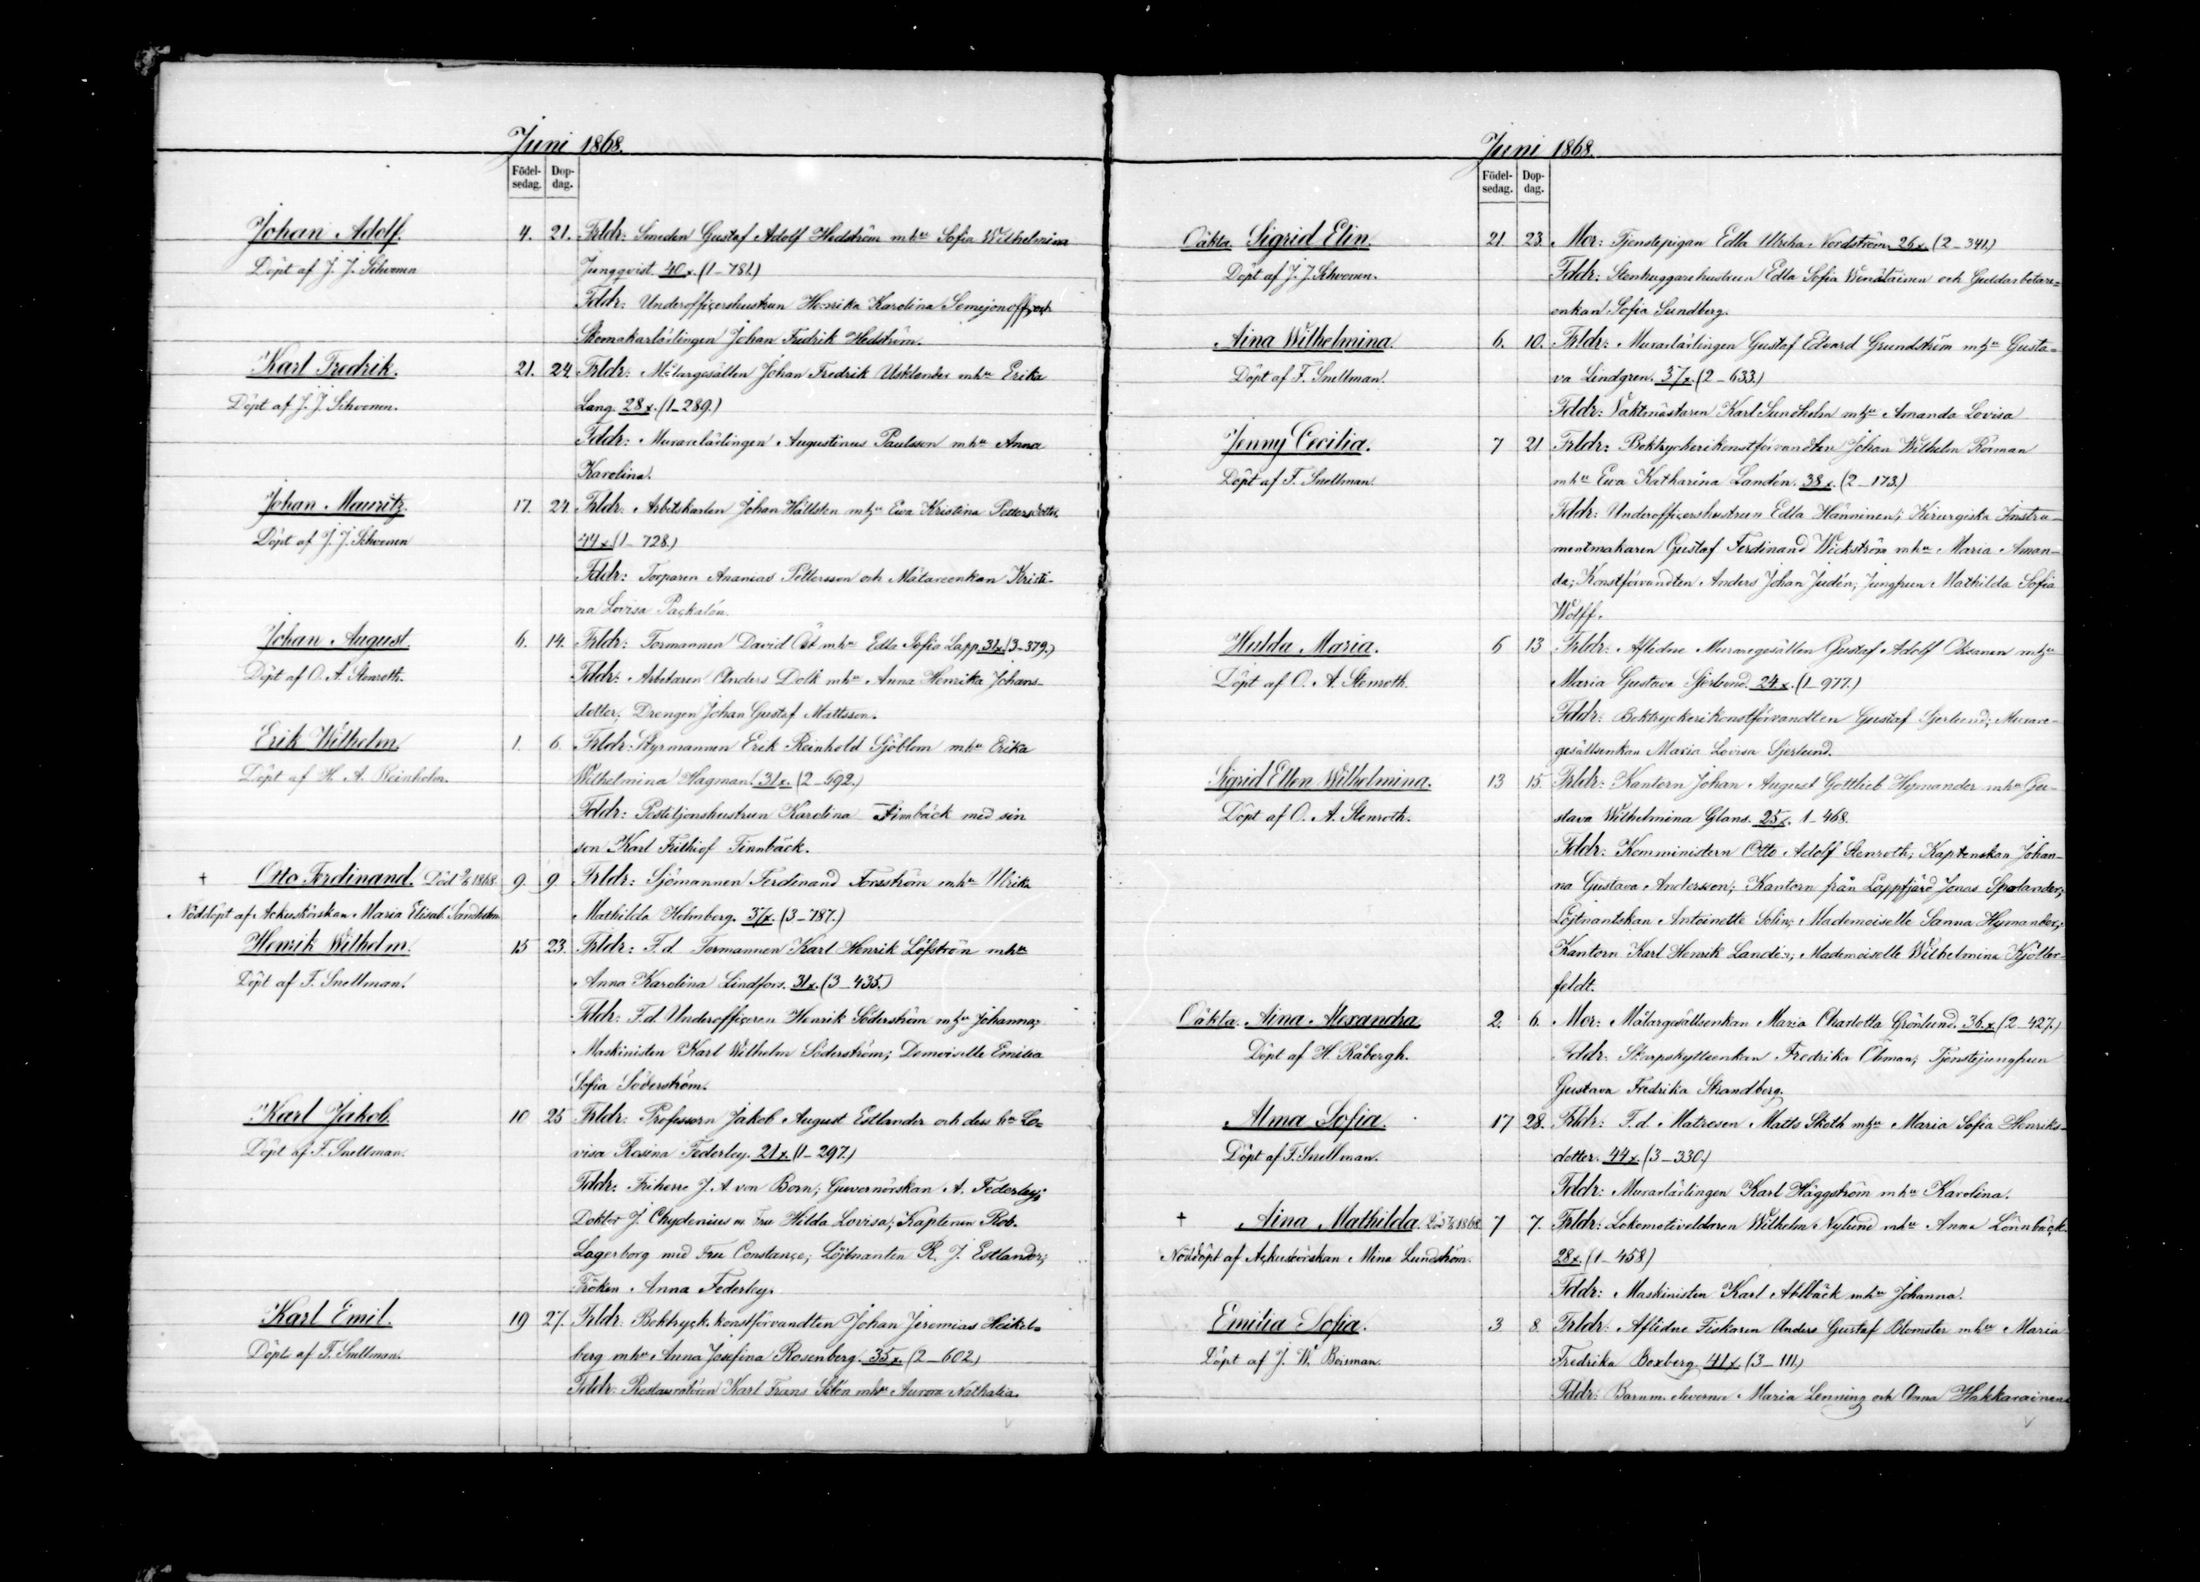 Juni 1868.
Födel-
sedag.
Dop-
dag.
Johan Adolf. 4. 21. Frldr: Smeden Gustaf Adolf Hedström mhu Sofia Wilhelmina
Döpt af J. J. Schvonen Jungqvist. 40 x. (1-781.)
Fddr: Underofficershustrun Henrika Karolina Semejonoff; och
Skomakarlärlingen Johan Fredrik Hedström.
Karl Fredrik. 21. 24. Frldr: Målargesällen Johan Fredrik mhu Erika
Döpt af J. J. Schvonen. Lang. 28 x. (1-289.)
Fddr: Murarelärlingen Augustinus Paulsson mhu Anna
Karolina.
Johan Mauritz. 17. 24. Frldr: Arbetskarlen Johan Hällsten mhu Ewa Kristina Pettersdotter
Döpt af J. J. Schvonen 44 x (1-728.)
Fddr: Torparen Ananias Pettersson och Målareenkan Kristi-
na Lovisa Packalén.
Johan August. 6. 14. Frldr: Formannen David Öst mhu Edla Sofia Lapp. 31 x. (3-379.)
Döpt af O. A. Stenroth. Fddr: Arbetaren Anders Dolk mhu Anna Henrika Johans-
dotter; Drengen Johan Gustaf Mattsson.
Erik Wilhelm. 1. 6. Frldr: Styrmannen Erik Reinhold Sjöblom mhu Erika
Döpt af H. A. Reinholm. Wilhelmina Hagman. 31 x. (2-592.)
Fddr: Postiljonshustrun Karolina Finnbäck med sin
son Karl Frithiof Finnbäck.
+ Otto Ferdinand. Död 9/6 1868. 9. 9. Frldr: Sjömannen Ferdinand Forsström mhu Ulrika
Nöddöpt af Ackuskörskan Maria Elisab. Sandholm Mathilda Holmberg. 37 x. (3-787.)
Henrik Wilhelm. 15 23. Frldr: F.d. Formannen Karl Henrik Löfström mhu
Döpt af F. Snellman. Anna Karolina Lindfors. 31 x. (3-435.)
Fddr: F.d. Underofficeren Henrik Söderström mhu Johanna;
Maskinisten Karl Wilhelm Söderström; Demoiselle Emilia
Sofia Söderström.
Karl Jakob. 10 25 Frldr: Professorn Jakob August Estlander och dess hu Lo-
Döpt af F. Snellman. visa Rosina Federley. 21 x. (1-297.)
Fddr: Friherre J. A. von Born; Guvernörskan A. Federley;
Doktor J. Chydenius m Fru Hilda Lovisa; Kaptenen Rob.
Lagerborg med Fru Constance; Löjtnanten R. J. Estlander;
Fröken Anna Federley.
Karl Emil. 19 27. Frldr: Boktryck. konstförvandten Johan Jeremias Heikel-
Döpt af F. Snellman. berg mhu Anna Josefina Rosenberg. 35 x. (2-602.)
Fddr: Restauratören Karl Frans mhu Aurora Nathalia.
Juni 1868.
Födel-
sedag.
Dop-
dag.
Oäkta. Sigrid Elin. 21. 23. Mor: Tjenstepigan Edla Ulrika Nordström. 26 x. (2-341.)
Döpt af J. J. Schvonen. Fddr: Stenhuggarehustrun Edla Sofia Wenäläinen och Guldarbetare-
enkan Sofia Sundberg.
Aina Wilhelmina. 6. 10. Frldr: Murarlärlingen Gustaf Edvard Grundström mhu Gusta-
Döpt af F. Snellman. va Lindgren. 37 x. (2-633.)
Fddr: Vaktmästaren Karl Sundholm mhu Amanda Lovisa
Jenny Cecilia. 7 21 Frldr: Boktryckerikonstförvandten Johan Wilhelm Roiman
Döpt af F. Snellman. mhu Ewa Katharina Landén. 38 x. (2-173.)
Fddr: Underofficershustrun Edla Hänninen; Kirurgiska Instru-
mentmakaren Gustaf Ferdinand Wickström mhu Maria Aman-
da; Konstförvandten Anders Johan Judén; Jungfrun Mathilda Sofia
Wolff.
Hulda Maria. 6 13 Frldr: Aflidne Muraregesällen Gustaf Adolf Oksanen mhu
Döpt af O. A. Stenroth. Maria Gustava Sjerlund. 24 x. (1-977.)
Fddr: Boktryckerikonstförvandten Gustaf Sjerlund; Murare-
gesällsenkan Maria Lovisa Sjerlund.
Sigrid Ellen Wilhelmina. 13 15. Frldr: Kantorn Johan August Gottlieb Hymander mhu Gu-
Döpt af O. A. Stenroth. stava Wilhelmina Glans. 25 x. 1-468.
Fddr: Komministern Otto Adolf Stenroth; Kaptenskan Johan-
na Gustava Andersson; Kantorn från Lappfjärd Jonas Spolander;
Löjtnantskan Antoinette Solin; Mademoiselle Sanna Hymander;
Kantorn Karl Henrik Landén; Mademoiselle Wilhelmina Kjöller-
feldt.
Oäkta. Aina Alexandra. 2. 6. Mor: Målargesällsenkan Maria Charlotta Grönlund. 36. x. (2-427.)
Döpt af H. Råbergh. Fddr: Skarpskytteenkan Fredrika Öhman; Tjenstejungfrun
Gustava Fredrika Strandberg.
Alma Sofia. 17 28. Frldr: F.d. Matrosen Matts Skoth mhu Maria Sofia Henriks-
Döpt af F. Snellman. dotter. 44 x. (3-330.)
Fddr: Murarlärlingen Karl Häggström mhu Karolina.
+ Aina Mathilda. Död 7/6 1868. 7 7. Frldr: Lokomotiveldaren Wilhelm Nylund mhu Anna Lönnbäck
Nöddöpt af Ackusörskan Mina Lundström. 28 x. (1-458)
Fddr: Maskinisten Karl Ahlbäck mhu Johanna.
Emilia Sofia. 3 8. Frldr: Aflidne Fiskaren Anders Gustaf Blomster mhu Maria
Döpt af J. W. Boisman. Fredrika Boxberg. 41 x. (3-111.)
Fddr: Barnm. eleverne Maria Lenning och Anna Hakkarainen.